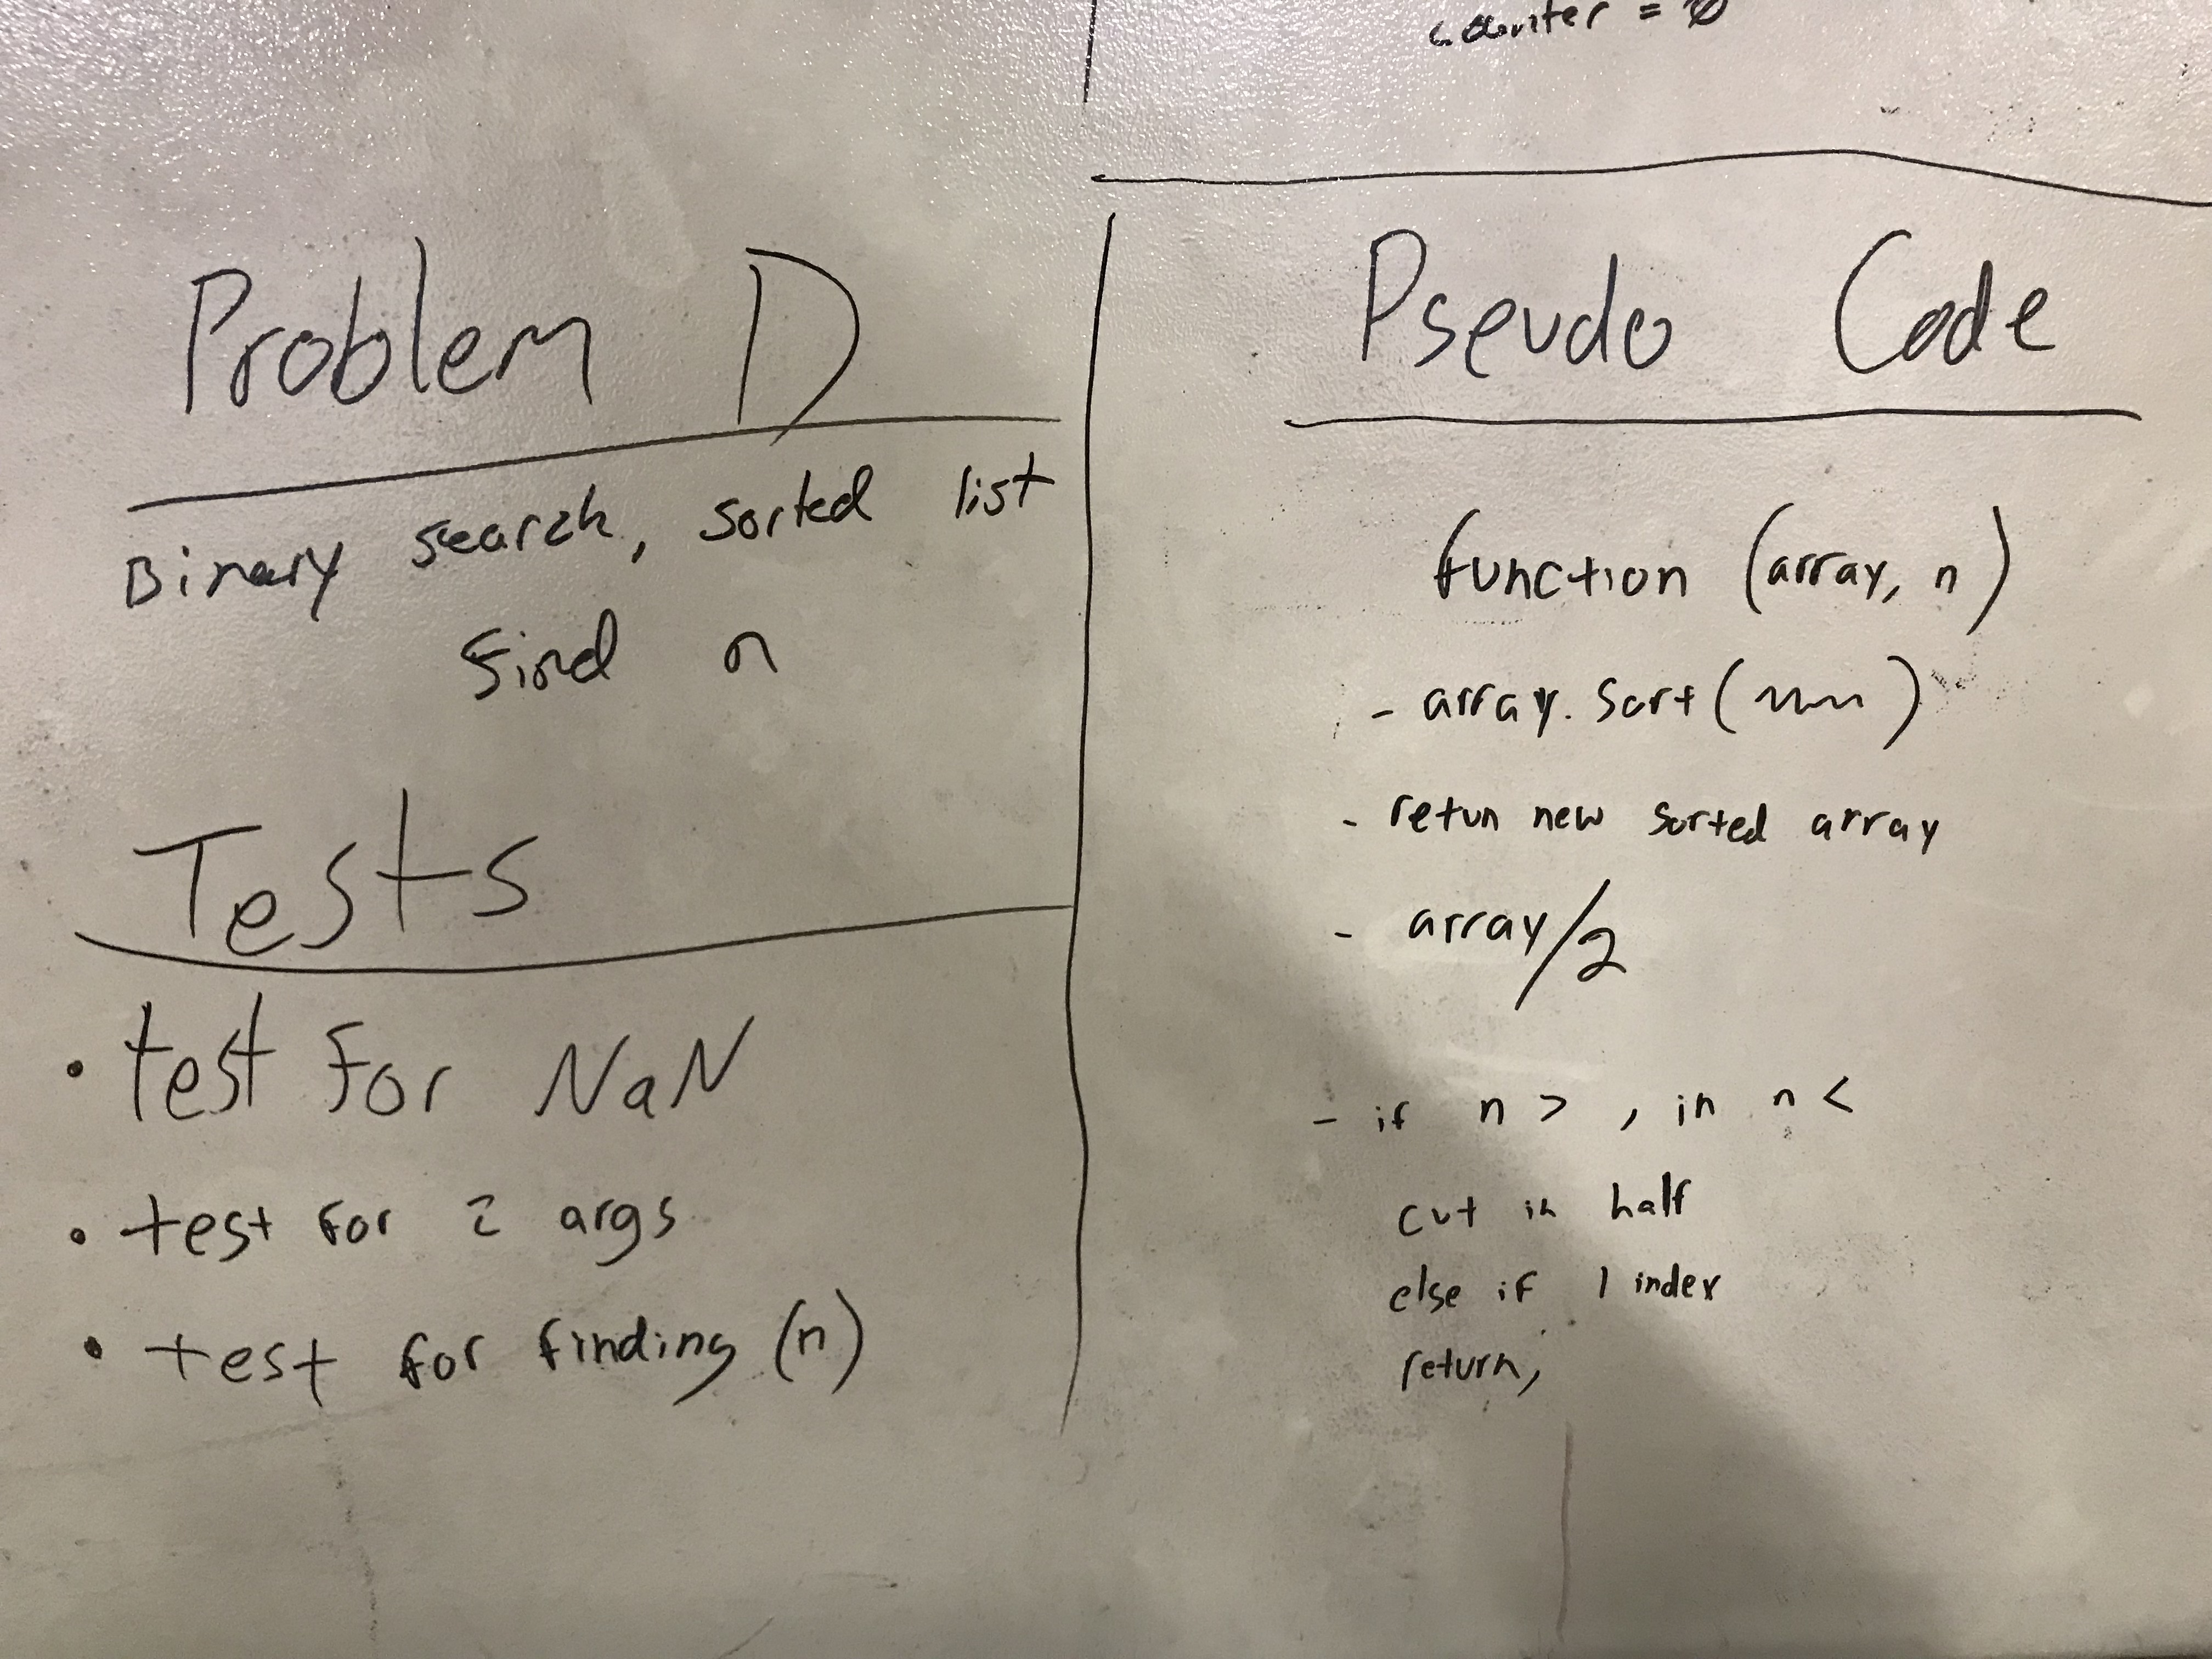 counter = 0
Problem D
Binary search, sorted list
find n
Tests
• test for NaN
• test for 2 args
• test for finding (n)
Pseudo Code
function (array, n)
- array.sort( )
- retun new sorted array
- array/2
- if n > , in n <
cut in half
else if 1 index
return,